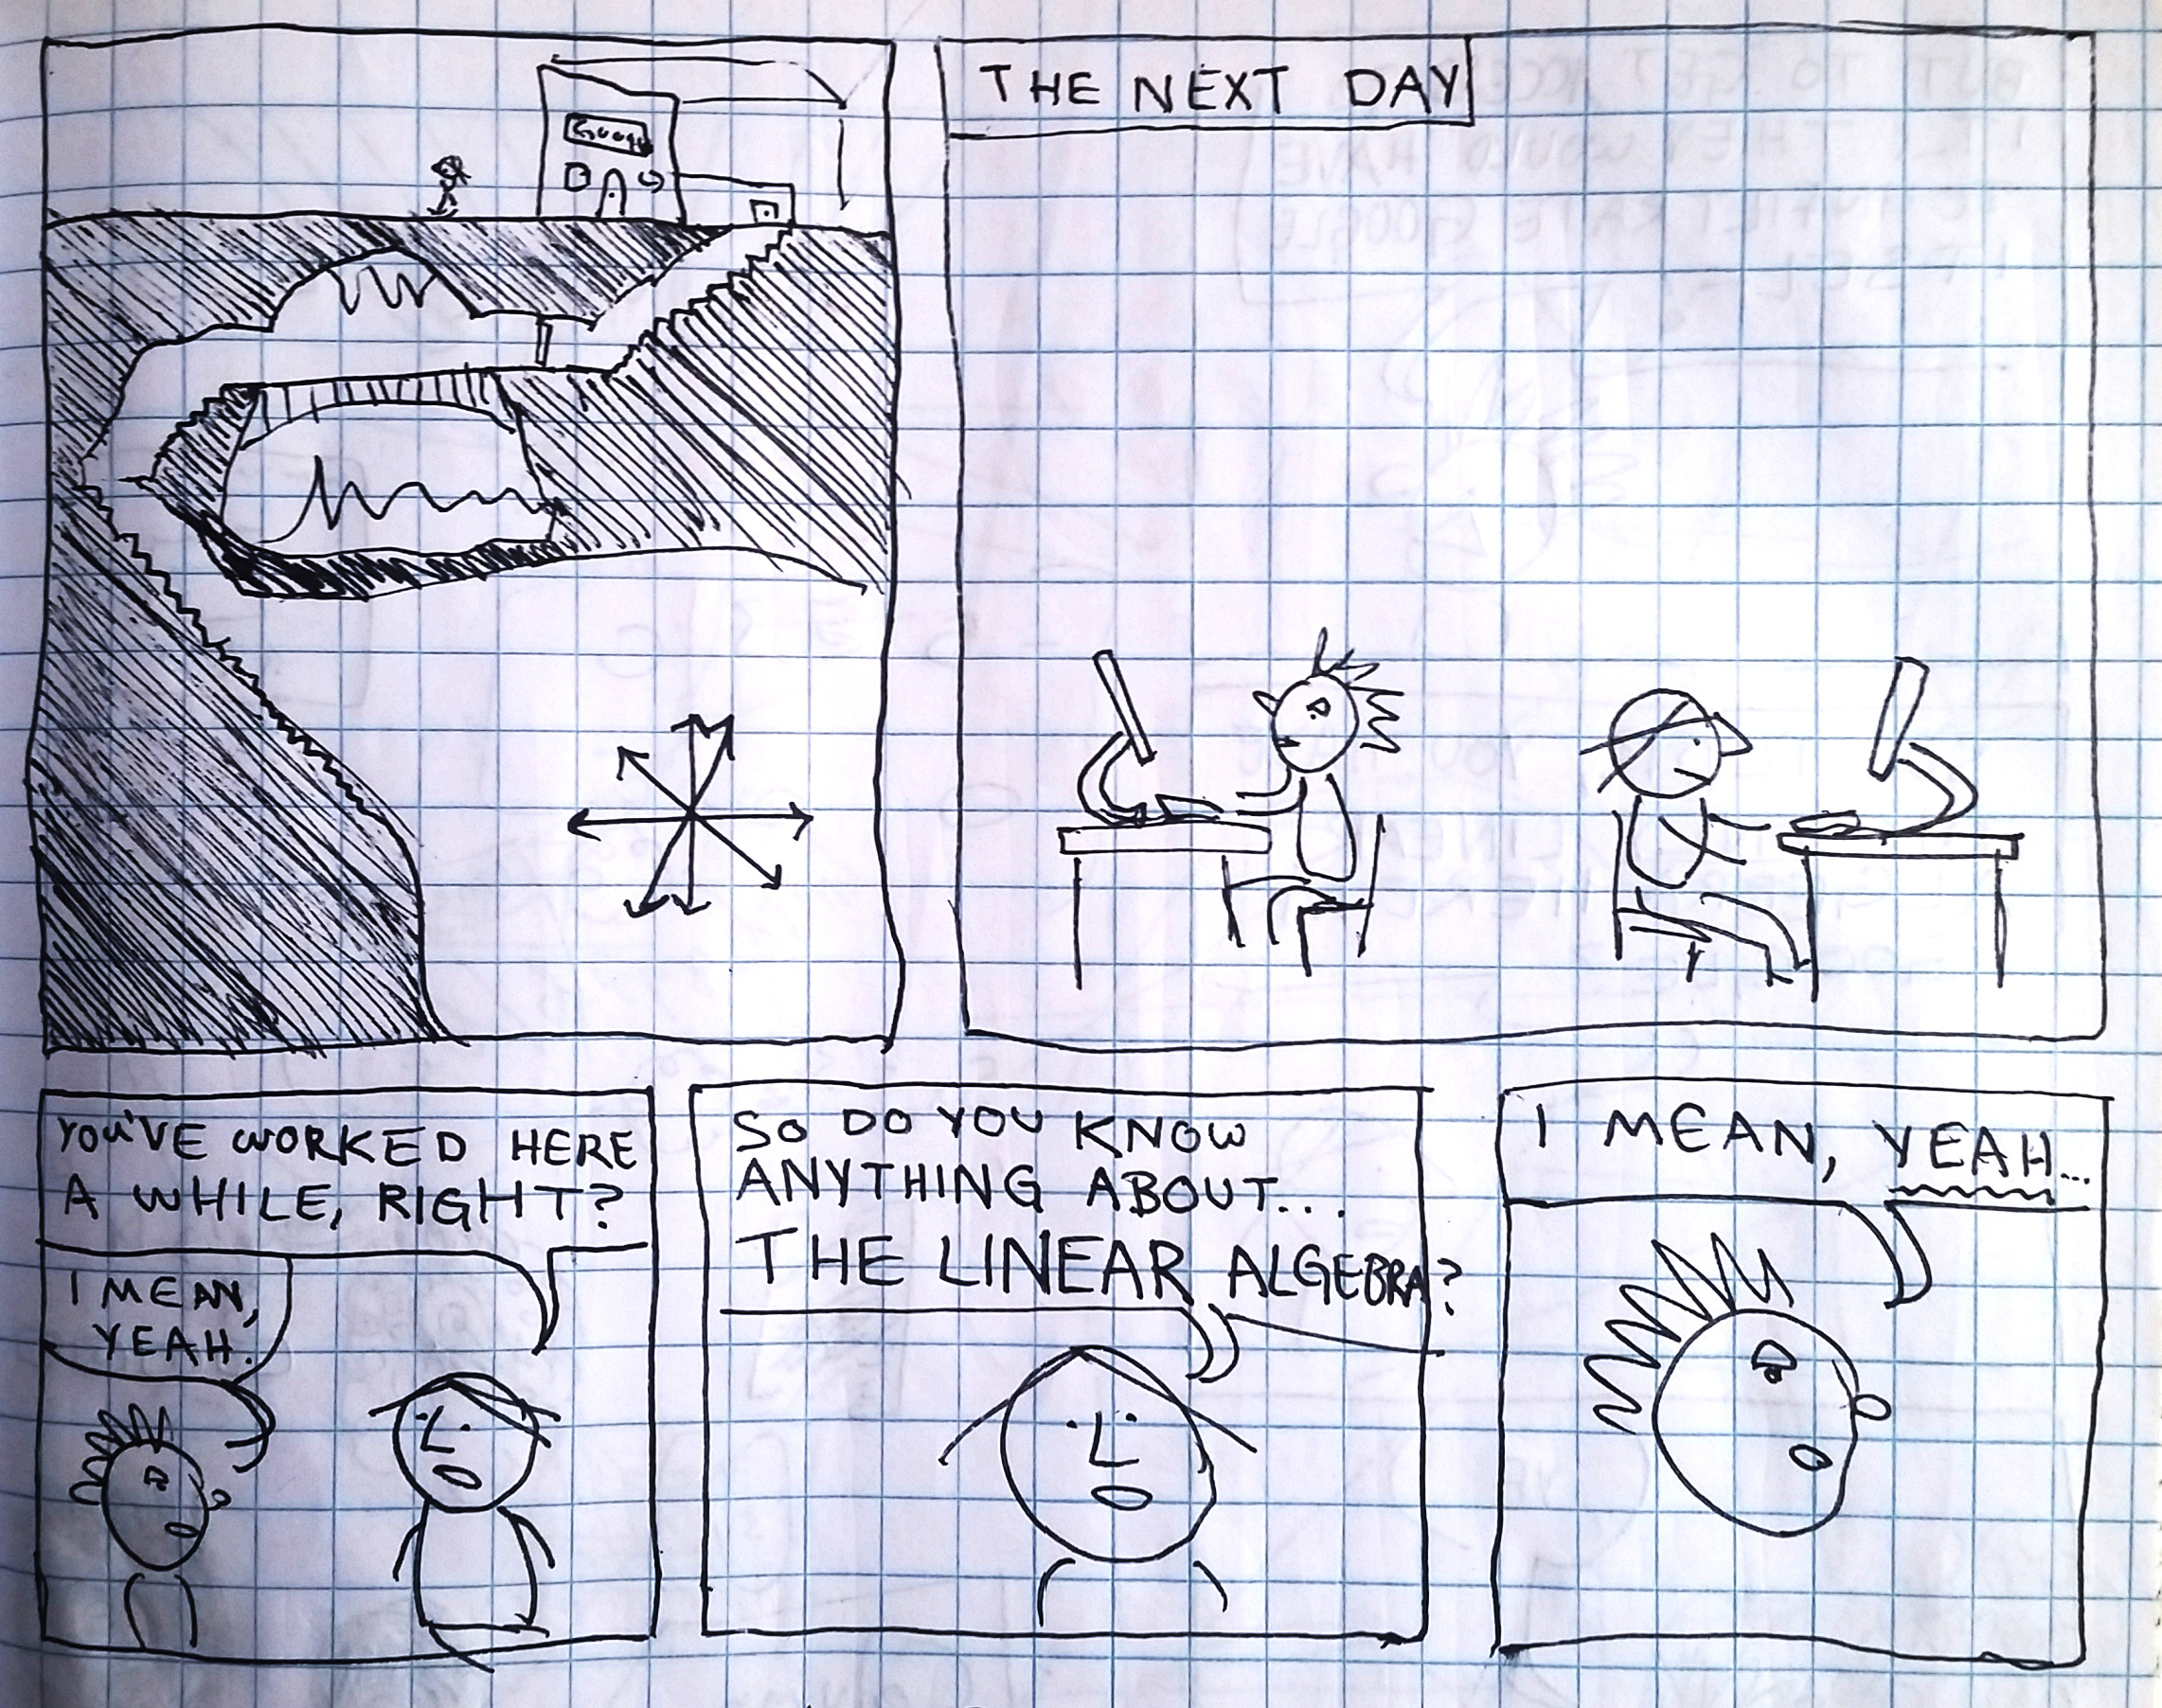 THE NEXT DAY
YOU'VE WORKED HERE
A WHILE, RIGHT?
I MEAN,
YEAH.
SO DO YOU KNOW
ANYTHING ABOUT...
THE LINEAR ALGEBRA?
I MEAN, YEAH...